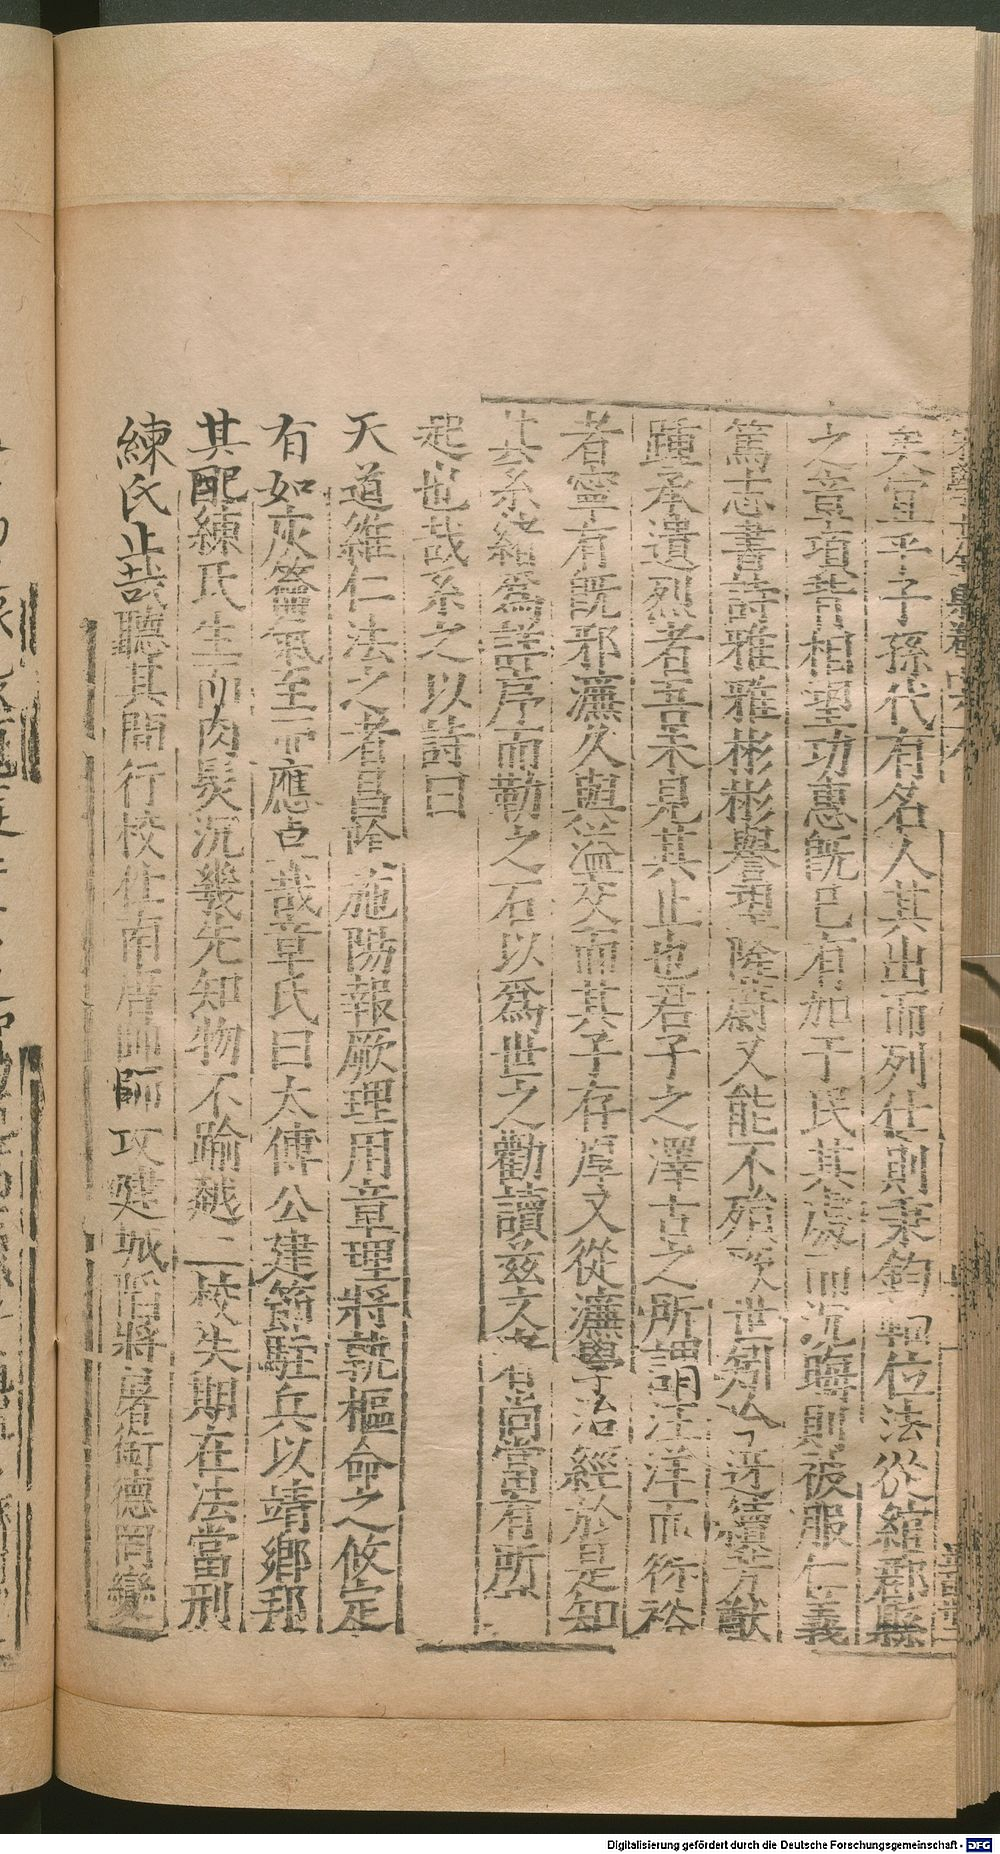 矣宜乎子孫代有名人其出而列仕則秉鈞軸位法從綰郡縣
之章項背相望功惠既已有加于民其處而沉晦則被服仁義
篤志書詩雅雅彬彬譽理陰騭又能不殞世
踵承遺烈者吾未見其止也君子之澤古之所謂汪洋而衍裕
者寧有既邪濂久與溢交而其子存厚又從濂學治經於是知
其系緒為詳序而勒之石以為世之勸讀茲文者尚當有所
起也哉系之以詩曰
天道維仁法之者昌陰施陽報厥理用章理將孰樞命之攸定
有如灰籥氣至而應卓哉章氏曰太傅公建節駐兵以靖鄉邦
其配練氏生而肉髮沉幾先知物不踰越二校失期在法當刑
練氏止哉聽其間行校仕南唐帥師攻建城陷將屠銜德罔變